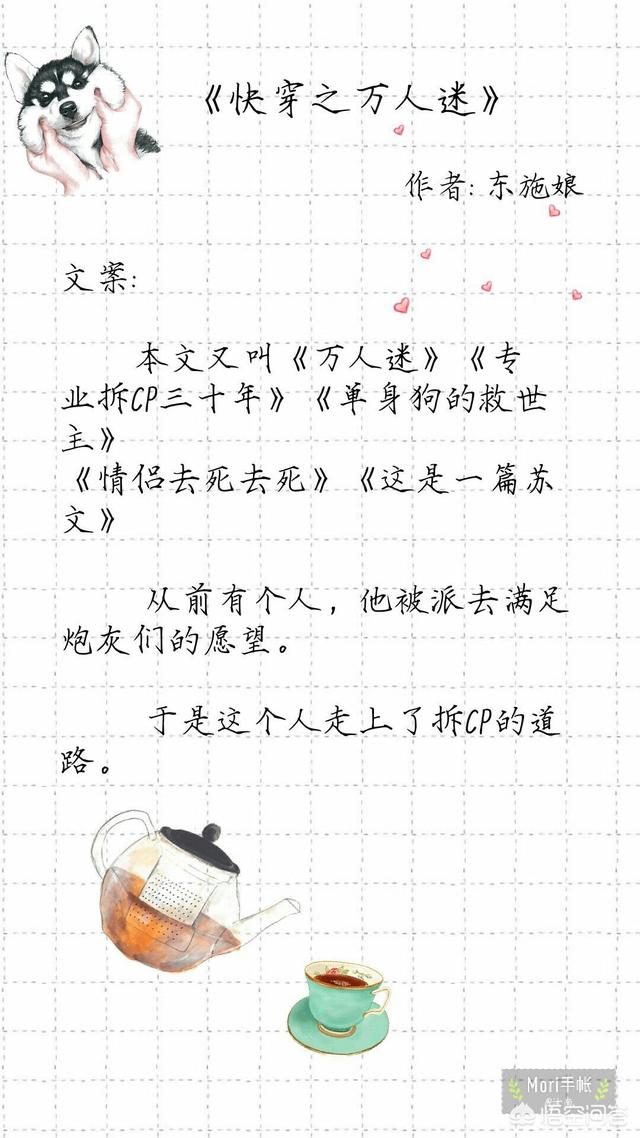 《快穿之万人迷》
作者: 东施娘
文案:
本文又叫《万人迷》《专
业拆CP三十年》《单身狗的救世
主》
《情侣去死去死》《这是一篇苏
文》
从前有个人，他被派去满足
炮灰们的愿望。
于是这个人走上了拆CP的道
路。
Mori手帐
悟空问答